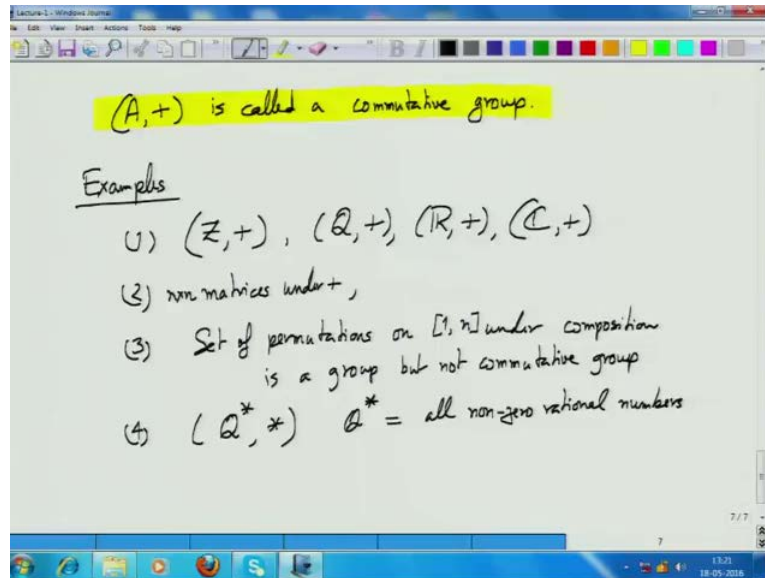 Lecture-1 - Windows Journal
File Edit View Insert Actions Tools Help
B I
(A,+) is called a commutative group.
Examples
(1) (Z,+), (Q,+), (R,+), (C,+)
(2) nxn matrices under +,
(3) Set of permutations on [1,n] under composition
is a group but not commutative group
(4) (Q*, *) Q* = all non-zero rational numbers
7/7
7
13:21
18-05-2016